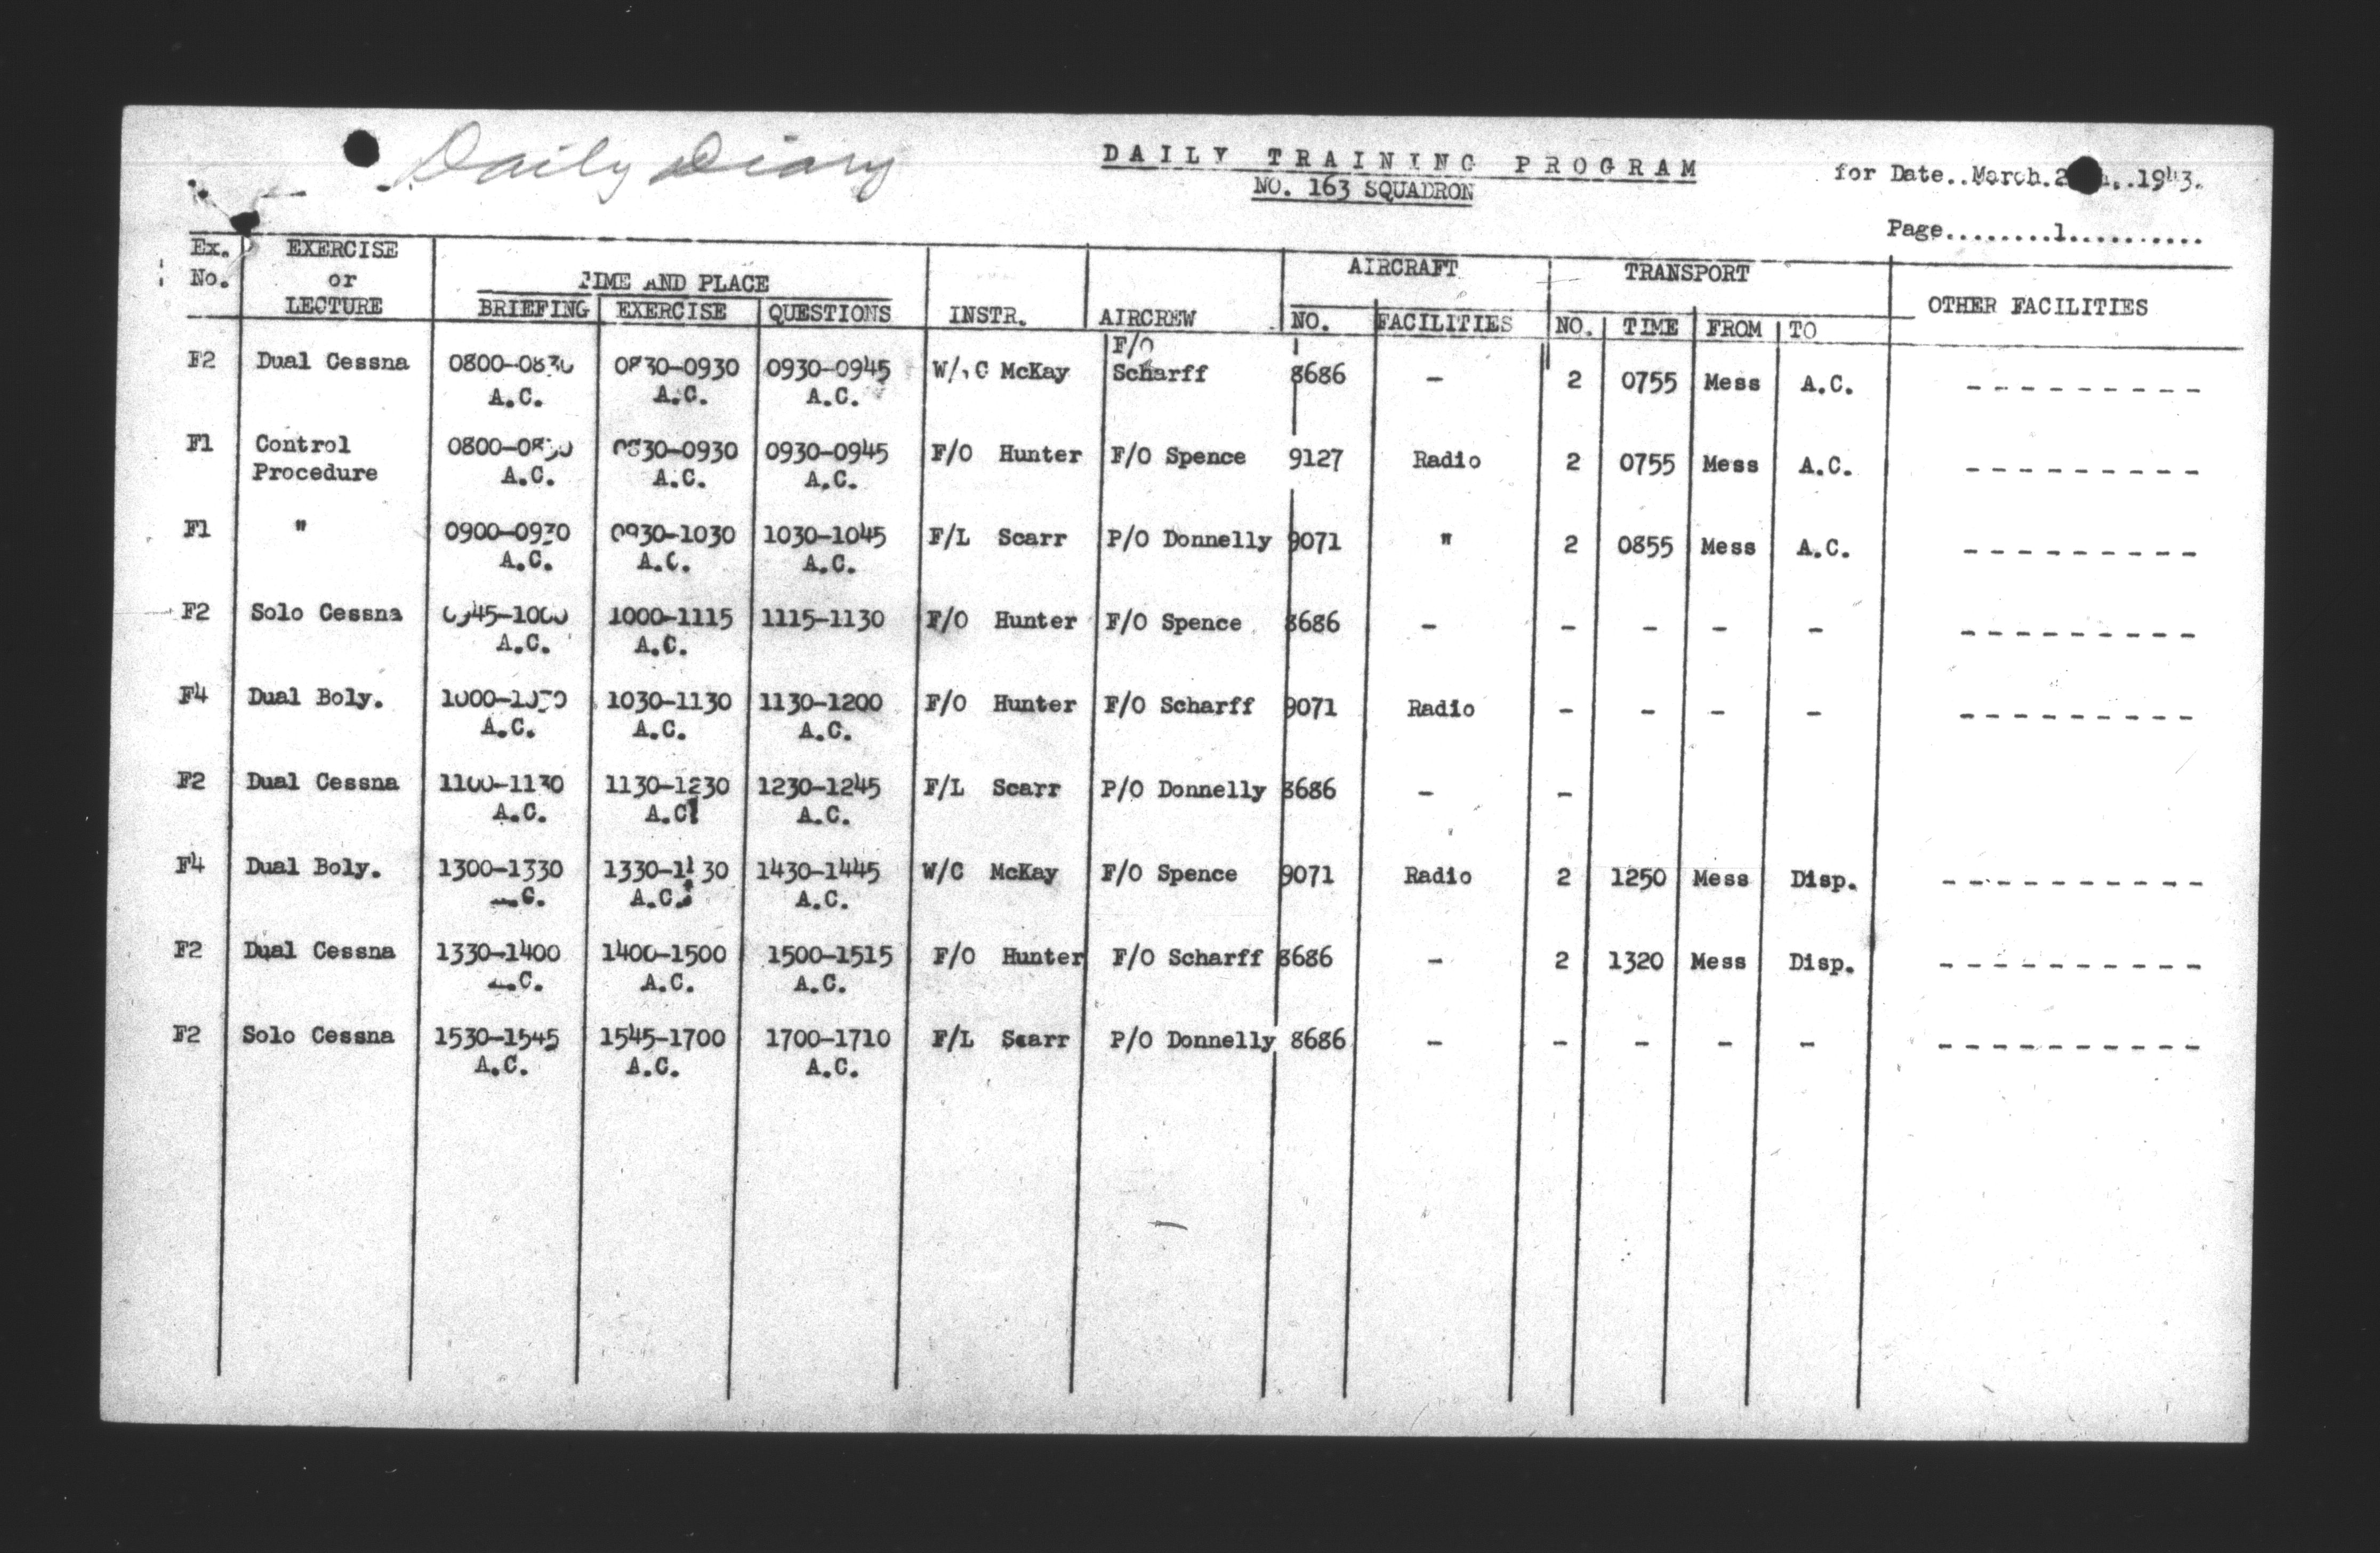 Daily Diary
DAILY TRAINING PROGRAM
NO. 163 SQUADRON
for Date..March. 1943.
Page........1..........
Ex. No. EXERCISE or LECTURE TIME AND PLACE INSTR. AIRCREW AIRCRAFT TRANSPORT OTHER FACILITIES
BRIEFING EXERCISE QUESTIONS NO. FACILITIES NO. TIME FROM TO
F/O
F2 Dual Cessna 0800-0830 0830-0930 0930-0945 W/C McKay Scharff 8686 - 2 0755 Mess A.C. ---------
A.C. A.C. A.C.
F1 Control 0800-0830 0830-0930 0930-0945 F/O Hunter F/O Spence 9127 Radio 2 0755 Mess A.C. ---------
Procedure A.C. A.C. A.C.
F1 " 0900-0930 0930-1030 1030-1045 F/L Scarr P/O Donnelly 9071 " 2 0855 Mess A.C. ---------
A.C. A.C. A.C.
F2 Solo Cessna 0945-1000 1000-1115 1115-1130 F/O Hunter F/O Spence 8686 - - - - - ---------
A.C. A.C.
F4 Dual Boly. 1000-1030 1030-1130 1130-1200 F/O Hunter F/O Scharff 9071 Radio - - - - ---------
A.C. A.C. A.C.
F2 Dual Cessna 1100-1130 1130-1230 1230-1245 F/L Scarr P/O Donnelly 8686 - -
A.C. A.C. A.C.
F4 Dual Boly. 1300-1330 1330-1430 1430-1445 W/C McKay F/O Spence 9071 Radio 2 1250 Mess Disp. ----------
A.C. A.C. A.C.
F2 Dual Cessna 1330-1400 1400-1500 1500-1515 F/O Hunter F/O Scharff 8686 - 2 1320 Mess Disp. ----------
A.C. A.C. A.C.
F2 Solo Cessna 1530-1545 1545-1700 1700-1710 F/L Scarr P/O Donnelly 8686 - - - - - ----------
A.C. A.C. A.C.